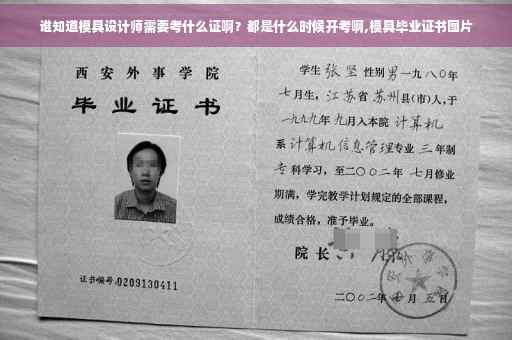 谁知道模具设计师需要考什么证啊？都是什么时候开考啊,模具毕业证书图片
西安外事学院
毕业证书
证书编号:0209130411
学生 张坚 性别 男 一九八〇年
七月生，江苏省 苏州 县(市)人，于
一九九九年 九月入本院 计算机
系 计算机信息管理 专业 三 年制
专科学习，至二〇〇二年 七月修业
期满，学完教学计划规定的全部课程，
成绩合格，准予毕业。
院长
二〇〇二年 七月 五日